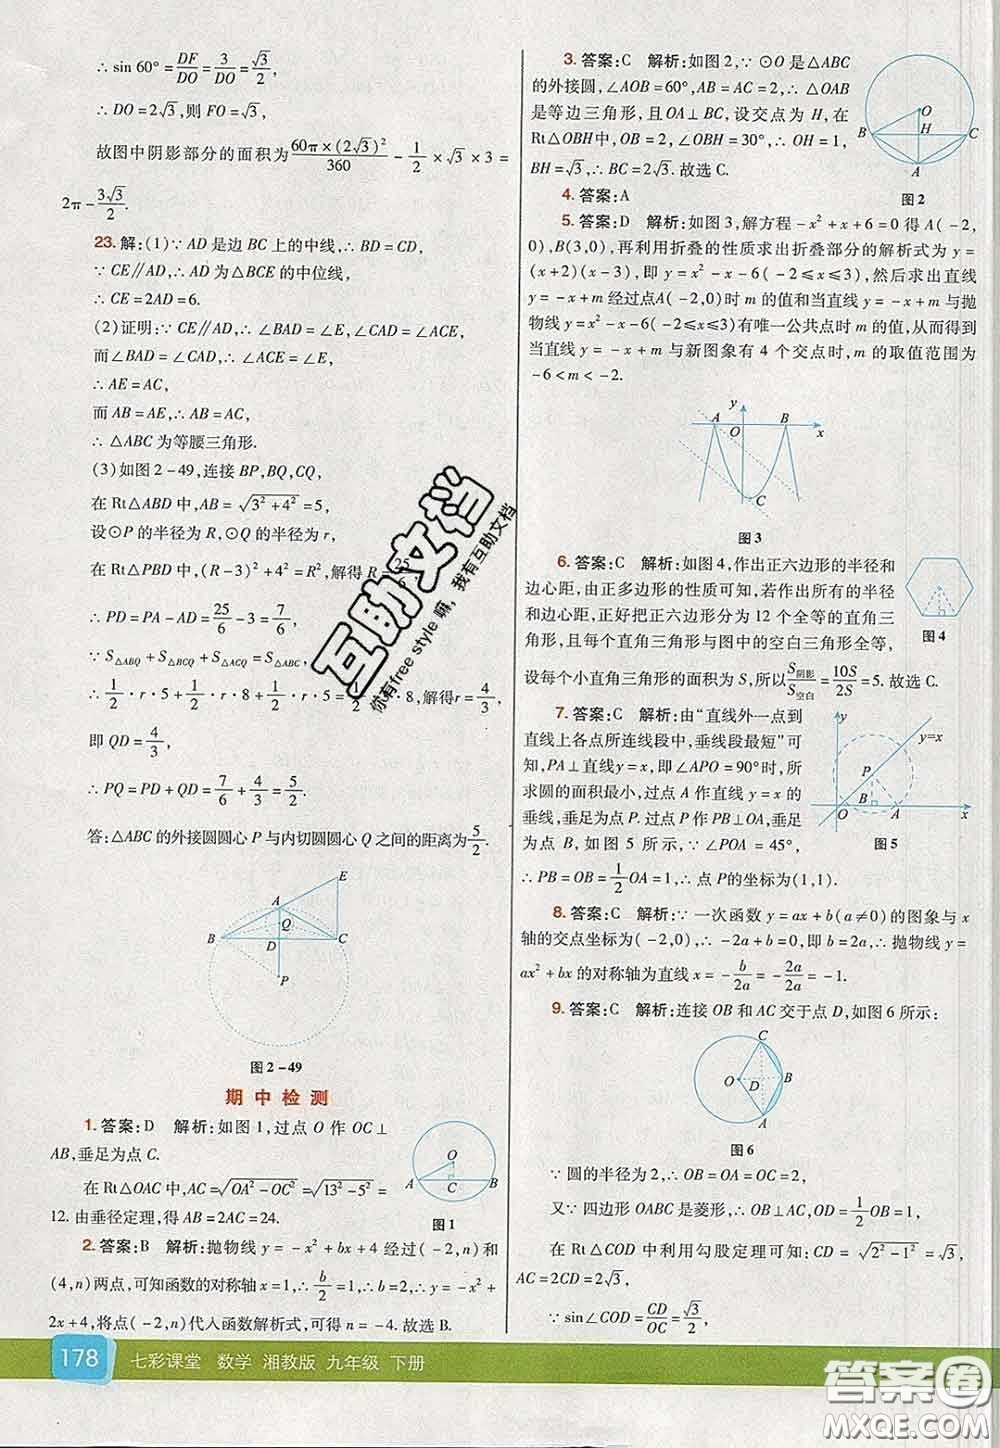 ∴ sin 60° = DF/DO = 3/DO = √3/2,
∴ DO = 2√3, 则 FO = √3,
故图中阴影部分的面积为 60π×(2√3)²/360 − 1/2 × √3 × 3 =
2π − 3√3/2.
23.解:(1)∵ AD 是边 BC 上的中线,∴ BD = CD,
∵ CE∥AD,∴ AD 为△BCE 的中位线,
∴ CE = 2AD = 6.
(2)证明:∵ CE∥AD,∴ ∠BAD = ∠E,∠CAD = ∠ACE,
而∠BAD = ∠CAD,∴ ∠ACE = ∠E,
∴ AE = AC,
而 AB = AE,∴ AB = AC,
∴ △ABC 为等腰三角形.
(3)如图 2-49,连接 BP,BQ,CQ,
在 Rt△ABD 中,AB = √(3² + 4²) = 5,
设⊙P 的半径为 R,⊙Q 的半径为 r,
在 Rt△PBD 中,(R-3)² + 4² = R²,解得 R =
∴ PD = PA - AD = 25/6 - 3 = 7/6,
∵ S△ABQ + S△BCQ + S△ACQ = S△ABC,
∴ 1/2 · r · 5 + 1/2 · r · 8 + 1/2 · r · 5 = · 8,解得 r = 4/3,
即 QD = 4/3,
∴ PQ = PD + QD = 7/6 + 4/3 = 5/2.
答:△ABC 的外接圆圆心 P 与内切圆圆心 Q 之间的距离为 5/2.
A
E
Q
B
D
C
P
图 2-49
期中检测
1. 答案:D 解析:如图 1,过点 O 作 OC⊥
AB,垂足为点 C.
在 Rt△OAC 中,AC = √(OA² - OC²) = √(13² - 5²) =
12. 由垂径定理,得 AB = 2AC = 24.
O
A
C
B
图 1
2. 答案:B 解析:抛物线 y = -x² + bx + 4 经过(-2,n)和
(4,n)两点,可知函数的对称轴 x = 1,∴ b/2 = 1,∴ b = 2,∴ y = -x² +
2x + 4,将点(-2,n)代入函数解析式,可得 n = -4. 故选 B.
3. 答案:C 解析:如图 2,∵ ⊙O 是△ABC
的外接圆,∠AOB = 60°,AB = AC = 2,∴ △OAB
是等边三角形,且 OA⊥BC,设交点为 H,在
Rt△OBH 中,OB = 2,∠OBH = 30°,∴ OH = 1,
BH = √3,∴ BC = 2√3. 故选 C.
O
B
H
C
A
图 2
4. 答案:A
5. 答案:D 解析:如图 3,解方程 -x² + x + 6 = 0 得 A(-2,
0),B(3,0),再利用折叠的性质求出折叠部分的解析式为 y =
(x+2)(x-3),即 y = x² - x - 6(-2≤x≤3),然后求出直线
y = -x + m 经过点A(-2,0)时 m 的值和当直线 y = -x + m 与抛
物线 y = x² - x - 6(-2≤x≤3)有唯一公共点时 m 的值,从而得到
当直线 y = -x + m 与新图象有 4 个交点时,m 的取值范围为
-6 < m < -2.
y
A
B
O
x
C
图 3
6. 答案:C 解析:如图 4,作出正六边形的半径和
边心距,由正多边形的性质可知,若作出所有的半径
和边心距,正好把正六边形分为 12 个全等的直角三
角形,且每个直角三角形与图中的空白三角形全等,
设每个小直角三角形的面积为 S,所以 S阴影/S空白 = 10S/2S = 5. 故选 C.
图 4
7. 答案:C 解析:由“直线外一点到
直线上各点所连线段中,垂线段最短”可
知,PA⊥直线y = x,即∠APO = 90°时,所
求圆的面积最小,过点 A 作直线 y = x 的
垂线,垂足为点 P. 过点 P 作 PB⊥OA,垂足
为点 B,如图 5 所示,∵ ∠POA = 45°,
∴ PB = OB = 1/2 OA = 1,∴ 点 P的坐标为(1,1).
y
y=x
P
B
O
A
x
图 5
8. 答案:C 解析:∵ 一次函数 y = ax + b(a≠0)的图象与 x
轴的交点坐标为(-2,0),∴ -2a + b = 0,即 b = 2a,∴ 抛物线 y =
ax² + bx 的对称轴为直线 x = -b/2a = -2a/2a = -1.
9. 答案:C 解析:连接 OB 和 AC 交于点 D,如图 6 所示:
C
O
D
B
A
图 6
∵ 圆的半径为 2,∴ OB = OA = OC = 2,
又∵ 四边形 OABC 是菱形,∴ OD = 1/2 OB = 1,
在 Rt△COD 中利用勾股定理可知:CD = √(2² - 1²) = √3,
AC = 2CD = 2√3,
∵ sin∠COD = CD/OC = √3/2,
178 七彩课堂 数学 湘教版 九年级 下册
互助文档
你有free style 嘛,我有互助文档
答案圈
MXQE.COM